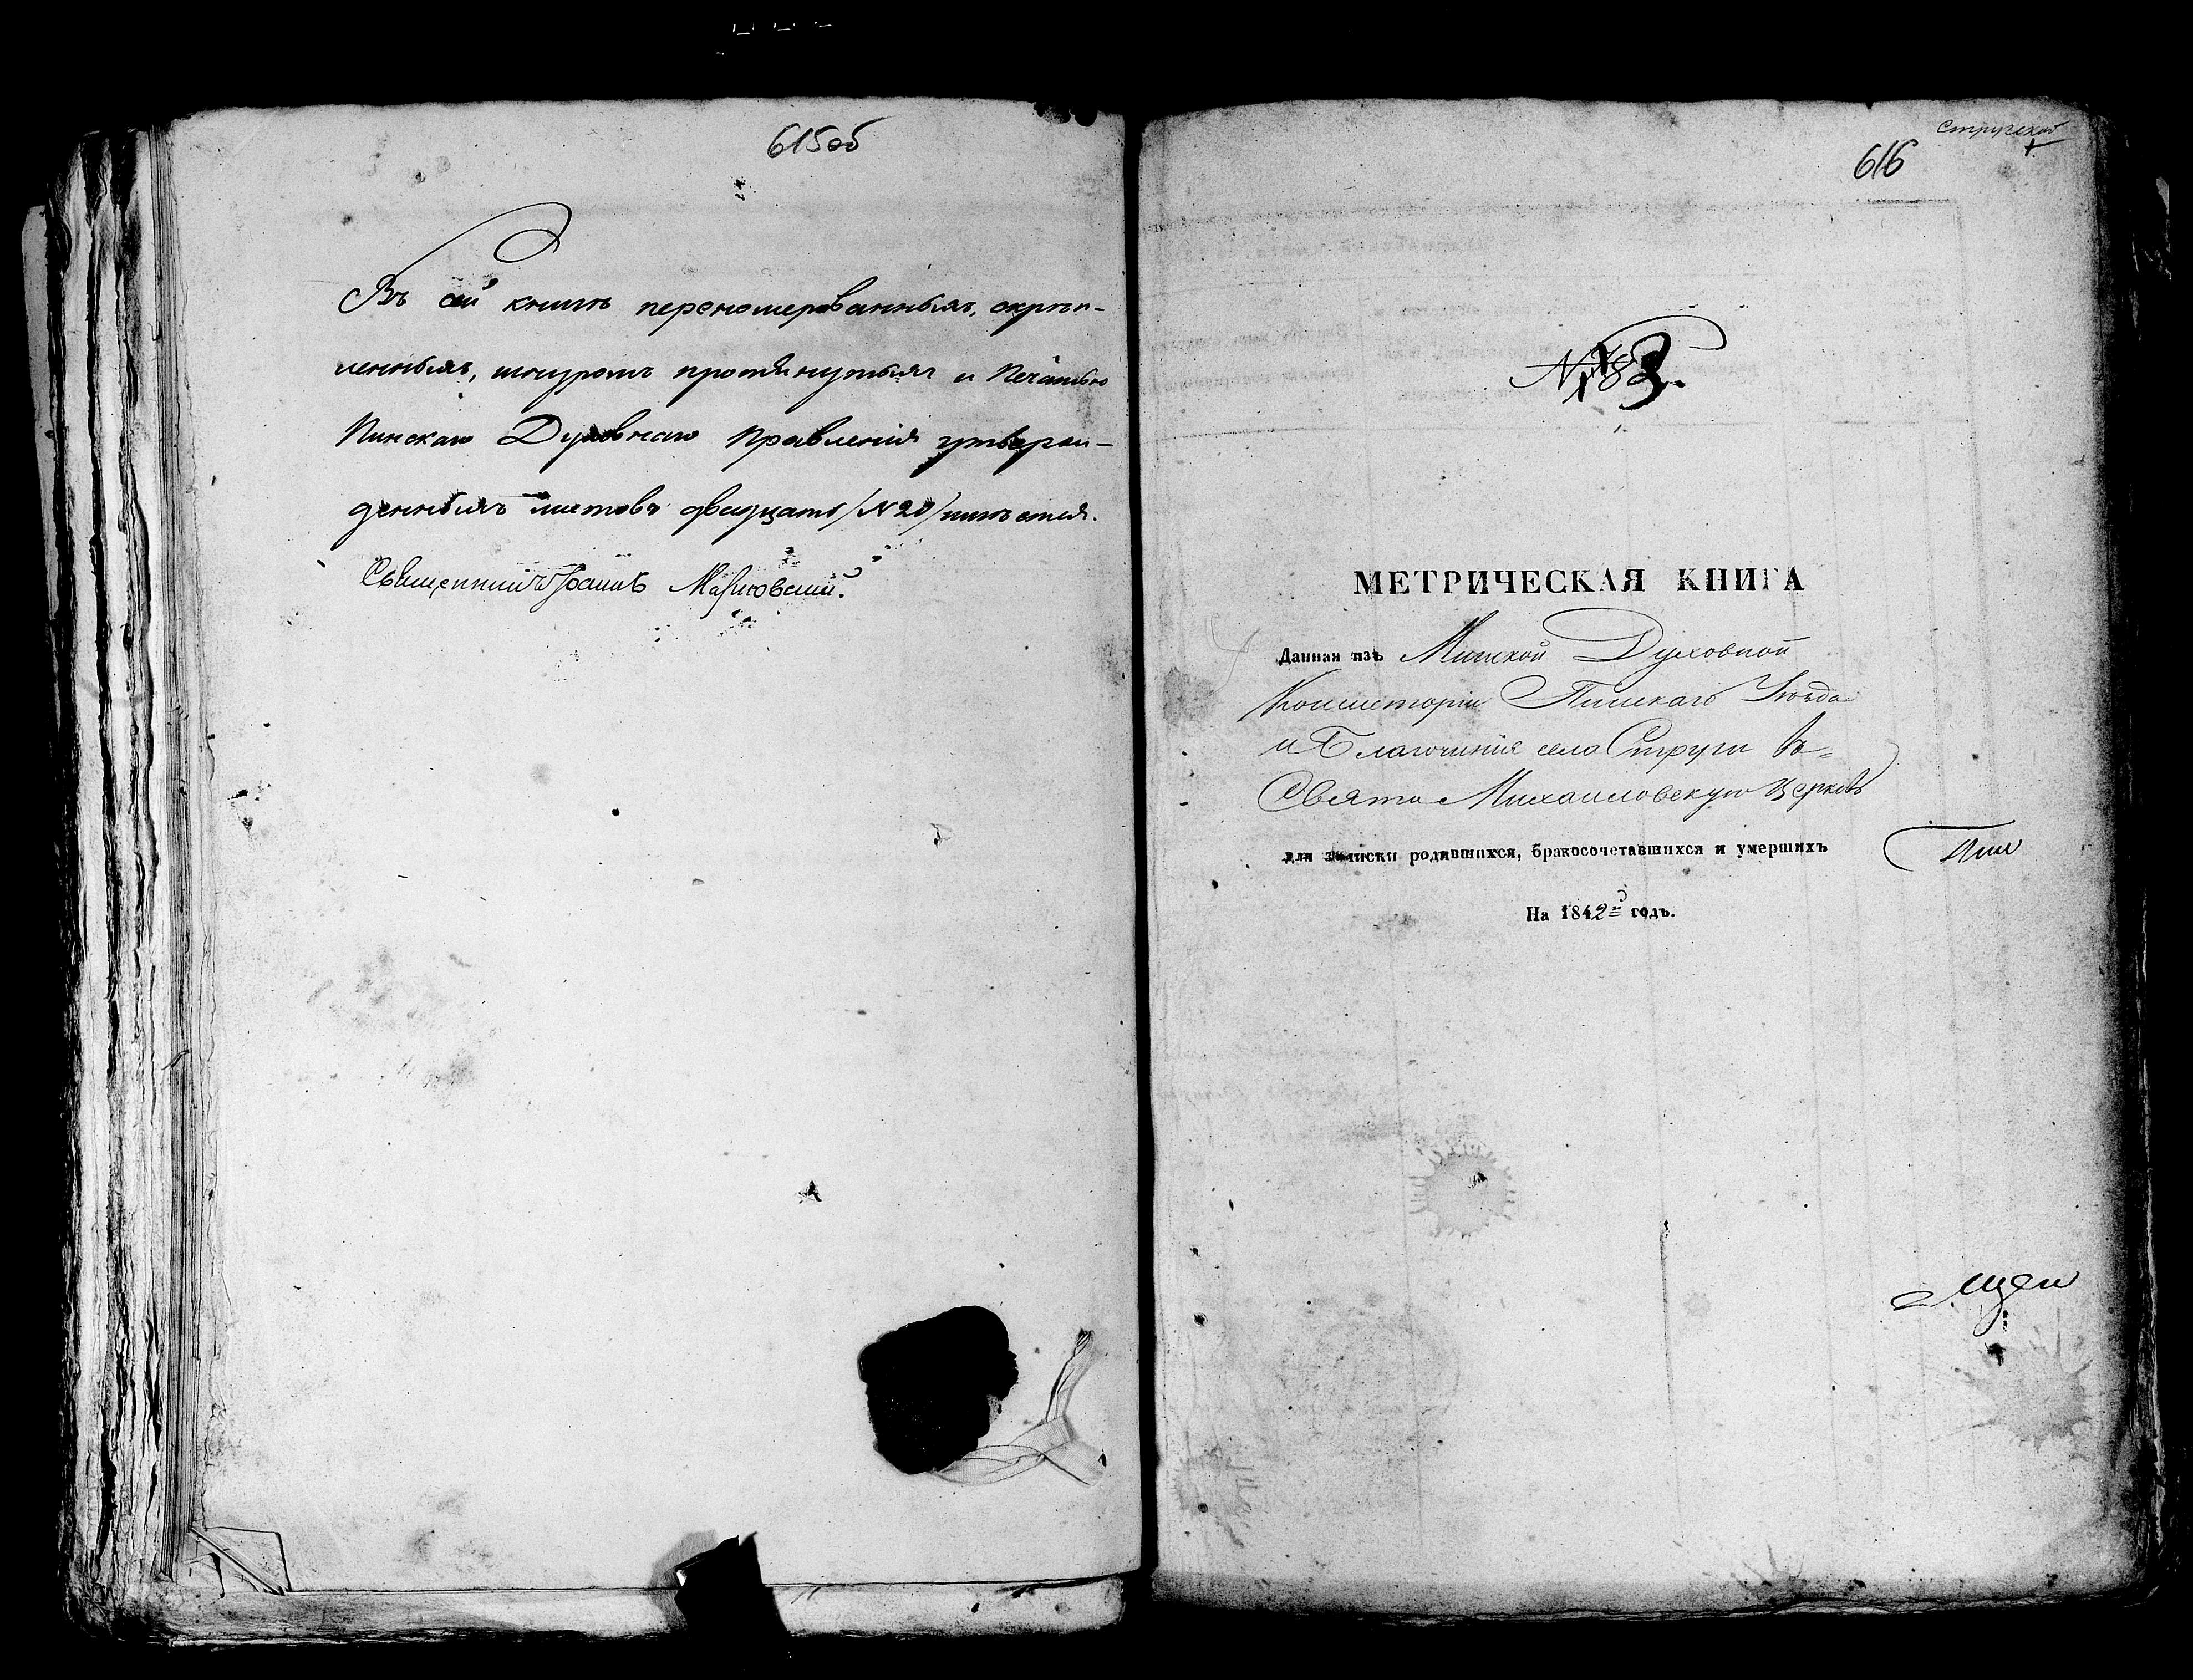 615об
Въ сей книгѣ перенумерованныхъ, скрѣп-
ленныхъ, шнуромъ протянутыхъ и печатью
Пинскаго Духовнаго Правленія утверж-
денныхъ листовъ двадцать /N 20/ имѣется.
Священникъ Іоаннъ
616
N 183.
МЕТРИЧЕСКАЯ КНИГА
Данная изъ Минской Духовной
Консисторіи Пинскаго Уѣзда
и Благочинія села Струги въ
Свято Михаиловскую Церковь
для записки родившихся, бракосочетавшихся и умершихъ
На 1842й годъ.